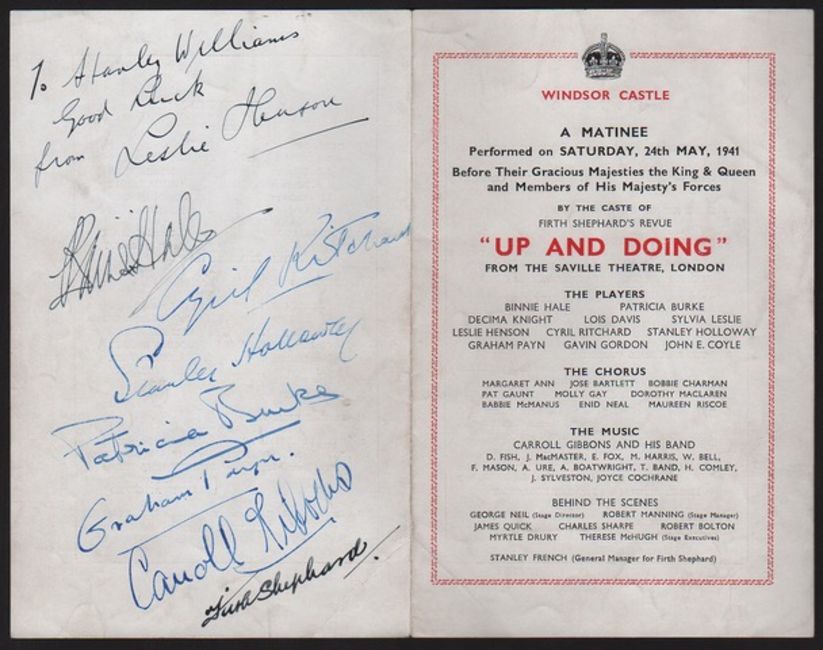 To Stanley Williams
Good Luck
from Leslie Henson
Binnie Hale
Cyril Ritchard
Stanley Holloway
Patricia Burke
Graham Payn.
Carroll Gibbons
Firth Shephard.
WINDSOR CASTLE
A MATINEE
Performed on SATURDAY, 24th MAY, 1941
Before Their Gracious Majesties the King & Queen
and Members of His Majesty's Forces
BY THE CASTE OF
FIRTH SHEPHARD'S REVUE
"UP AND DOING"
FROM THE SAVILLE THEATRE, LONDON
THE PLAYERS
BINNIE HALE PATRICIA BURKE
DECIMA KNIGHT LOIS DAVIS SYLVIA LESLIE
LESLIE HENSON CYRIL RITCHARD STANLEY HOLLOWAY
GRAHAM PAYN GAVIN GORDON JOHN E. COYLE
THE CHORUS
MARGARET ANN JOSE BARTLETT BOBBIE CHARMAN
PAT GAUNT MOLLY GAY DOROTHY MACLAREN
BABBIE McMANUS ENID NEAL MAUREEN RISCOE
THE MUSIC
CARROLL GIBBONS AND HIS BAND
D. FISH, J. MacMASTER, E. FOX, M. HARRIS, W. BELL,
F. MASON, A. URE, A. BOATWRIGHT, T. BAND, H. COMLEY,
J. SYLVESTON, JOYCE COCHRANE
BEHIND THE SCENES
GEORGE NEIL (Stage Director) ROBERT MANNING (Stage Manager)
JAMES QUICK CHARLES SHARPE ROBERT BOLTON
MYRTLE DRURY THERESE McHUGH (Stage Executives)
STANLEY FRENCH (General Manager for Firth Shephard)